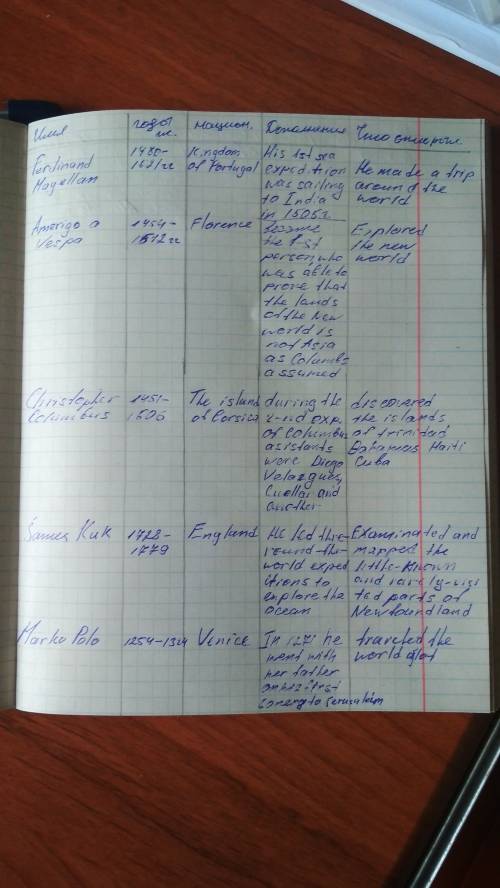 Имя годы ж. национ. Дополнения Что открыл
Ferdinand Magellan
1480-
1521гг
Kingdom
of Portugal
His 1st sea
expedition
was sailing
to India
in 1505г
He made a trip
around the
world
Amerigo a
Vespa
1454-
1512гг
Florence
became
the 1-st
person, who
was able to
prove that
the lands
of the New
world is
not Asia
as Columbs
assumed
Explored
the new
world
Christopher
Columbus
1451-
1506
The island
of Corsica
during the
2-nd exp.
of Columbus
asistants
were Diego
Velazques,
Cuellar and
another
discovered
the islands
of trinidad
Bahamas Haiti
Cuba
James Kuk
1728-
1779
England
He led three
round-the-
world exped
itions to
explore the
ocean
Examinated and
mapped the
little-known
and rarely-visi
ted parts of
Newfoundland
Marko Polo
1254-1324
Venice
In 1271 he
went with
her father
to Jerusalem
traveled the
world a lot